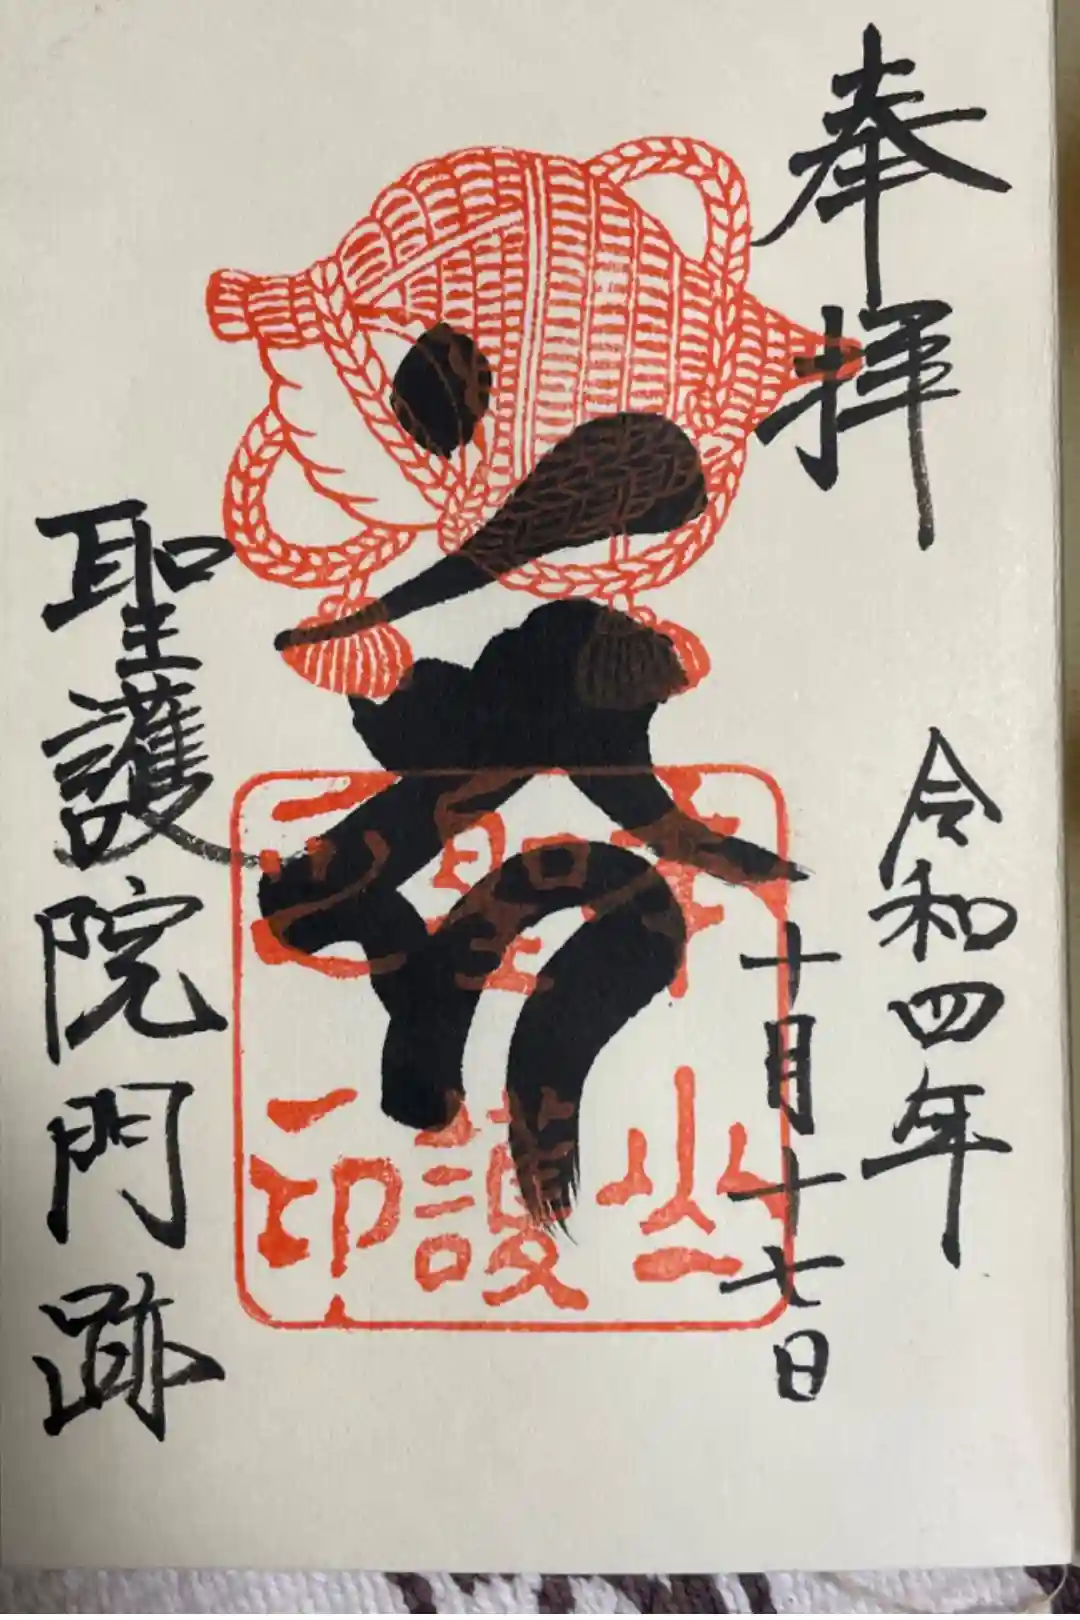 奉拝
令和四年
十月十七日
本山
聖護
印
聖護院門跡